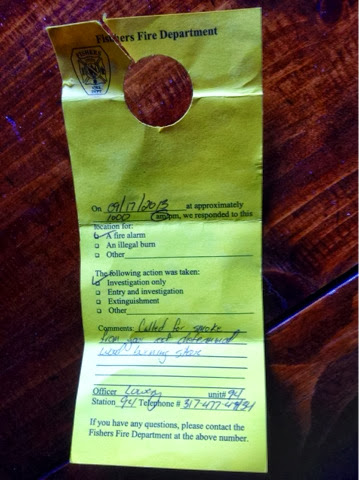 Fishers Fire Department
FISHERS
FIRE
DEPT
On 09/17/2013 at approximately
1000 am/pm, we responded to this
location for:
A fire alarm
An illegal burn
Other
The following action was taken:
Investigation only
Entry and investigation
Extinguishment
Other
Comments: Called for smoke
from far not determined
wood burning stove
Officer Lowery unit# 94
Station 94 Telephone # 317-477-4934
If you have any questions, please contact the
Fishers Fire Department at the above number.